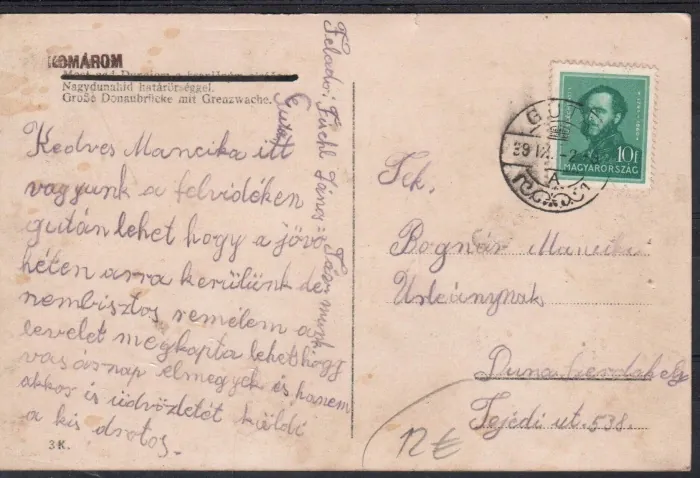 KOMÁROM
Nagydunahíd határőrséggel.
Große Donaubrücke mit Grenzwache.
Kedves Mancika itt
vagyunk a felvidéken
gután lehet hogy a jövő
héten arra kerülünk de
nembiztos remélem a
levelet megkapta lehet hogy
vasárnap elmegyek és hanem
akkor is üdvözletét küldi
a kis drotos.
3 K.
Feladó: Fischl János
munk.
10f
MAGYARORSZÁG
Tek.
Bognár Mancika
Urleánynak
Dunaszerdahely
Fejédi ut. 538.
12€